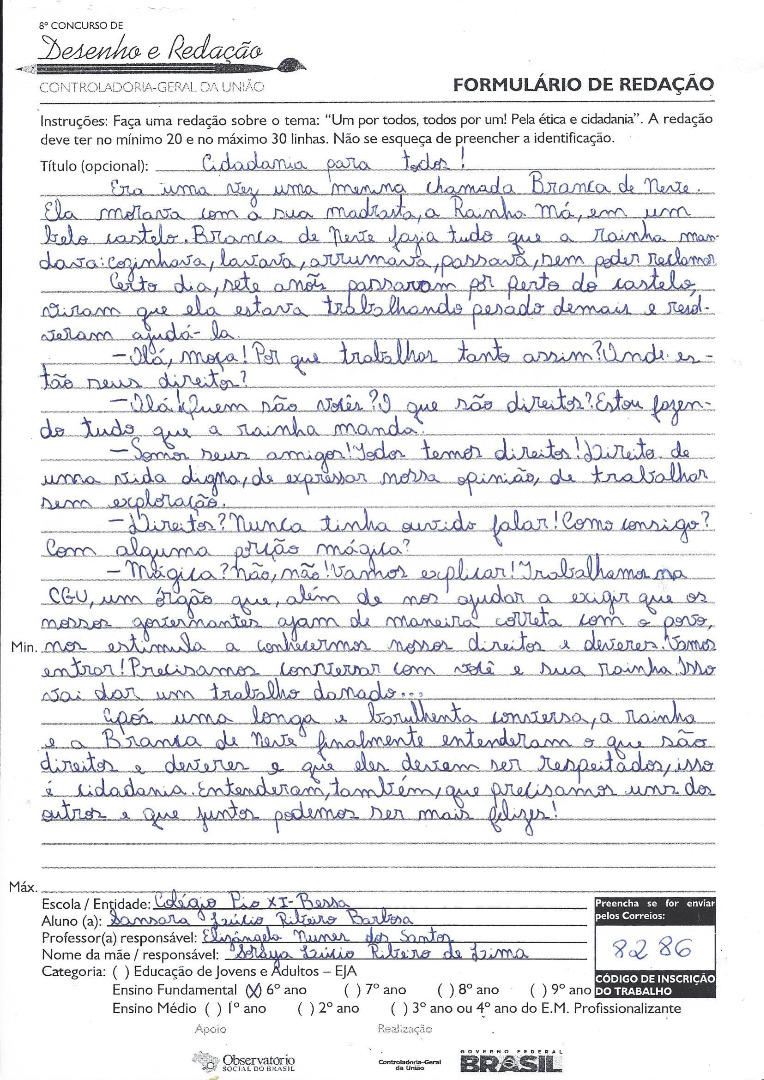 8º CONCURSO DE
Desenho e Redação
CONTROLADORIA-GERAL DA UNIÃO
FORMULÁRIO DE REDAÇÃO
Instruções: Faça uma redação sobre o tema: “Um por todos, todos por um! Pela ética e cidadania”. A redação
deve ter no mínimo 20 e no máximo 30 linhas. Não se esqueça de preencher a identificação.
Título (opcional): Cidadania para todos!
Era uma vez uma menina chamada Branca de Neve.
Ela morava com a sua madrasta, a Rainha Má, em um
belo castelo. Branca de Neve fazia tudo que a rainha man-
dava: cozinhava, lavava, arrumava, passava, sem poder reclamar
Certo dia, sete anões passaram por perto do castelo,
viram que ela estava trabalhando pesado demais e resol-
veram ajudá-la.
– Olá, moça! Por que trabalhas tanto assim? Onde es-
tão seus direitos?
– Olá! Quem são vocês? O que são direitos? Estou fazen-
do tudo que a rainha manda.
– Somos seus amigos! Todos temos direitos! Direito de
uma vida digna, de expressar nossa opinião, de trabalhar
sem exploração.
– Direitos? Nunca tinha ouvido falar! Como consigo?
Com alguma porção mágica?
– Mágica? Não, não! Vamos explicar! Trabalhamos na
CGU, um órgão que, além de nos ajudar a exigir que os
nossos governantes ajam de maneira correta com o povo,
Min. nos estimula a conhecermos nossos direitos e deveres. Vamos
entrar! Precisamos conversar com você e sua rainha. Isso
vai dar um trabalho danado...
Após uma longa e barulhenta conversa, a rainha
e a Branca de Neve finalmente entenderam o que são
direitos e deveres e que eles devem ser respeitados, isso
é cidadania. Entenderam, também, que precisamos uns dos
outros e que juntos podemos ser mais felizes!
Máx.
Escola / Entidade: Colégio Pio XI-Bessa
Aluno (a): Sansara Lúcio Ribeiro Barbosa
Professor(a) responsável: Elizângela Nunes dos Santos
Nome da mãe / responsável: Soraya Lúcio Ribeiro de Lima
Preencha se for enviar
pelos Correios:
8286
CÓDIGO DE INSCRIÇÃO
DO TRABALHO
Categoria: ( ) Educação de Jovens e Adultos – EJA
Ensino Fundamental (X) 6º ano ( ) 7º ano ( ) 8º ano ( ) 9º ano
Ensino Médio ( ) 1º ano ( ) 2º ano ( ) 3º ano ou 4º ano do E.M. Profissionalizante
Apoio
Realização
Observatório
SOCIAL DO BRASIL
Controladoria-Geral
da União
GOVERNO FEDERAL
BRASIL